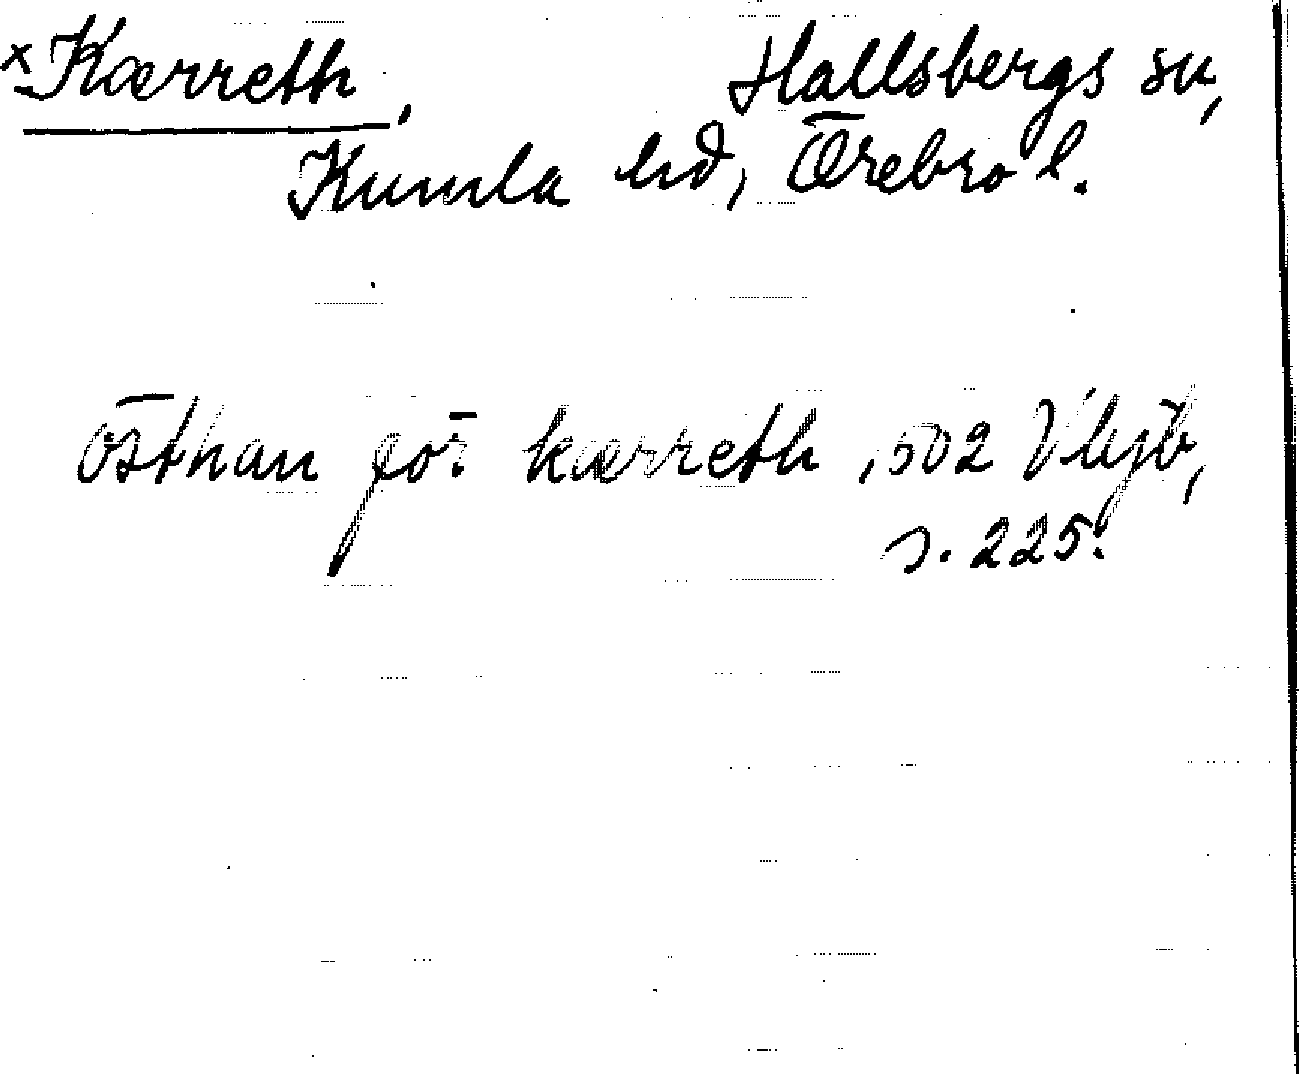 x Kærreth, Hallsbergs sn,
Kumla hd, Örebro l.
östhan för kærreth, 1502 Vljb,
s. 225.